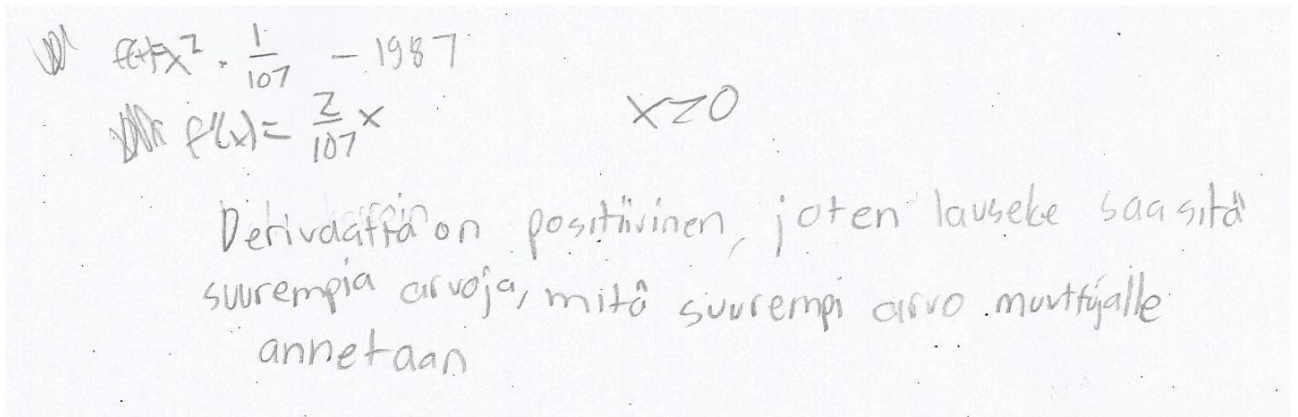 f(x)=x² · 1/107 - 1987
f'(x) = 2/107 x
x≥0
Derivaatta on positiivinen, joten lauseke saa sitä
suurempia arvoja, mitä suurempi arvo muuttujalle
annetaan